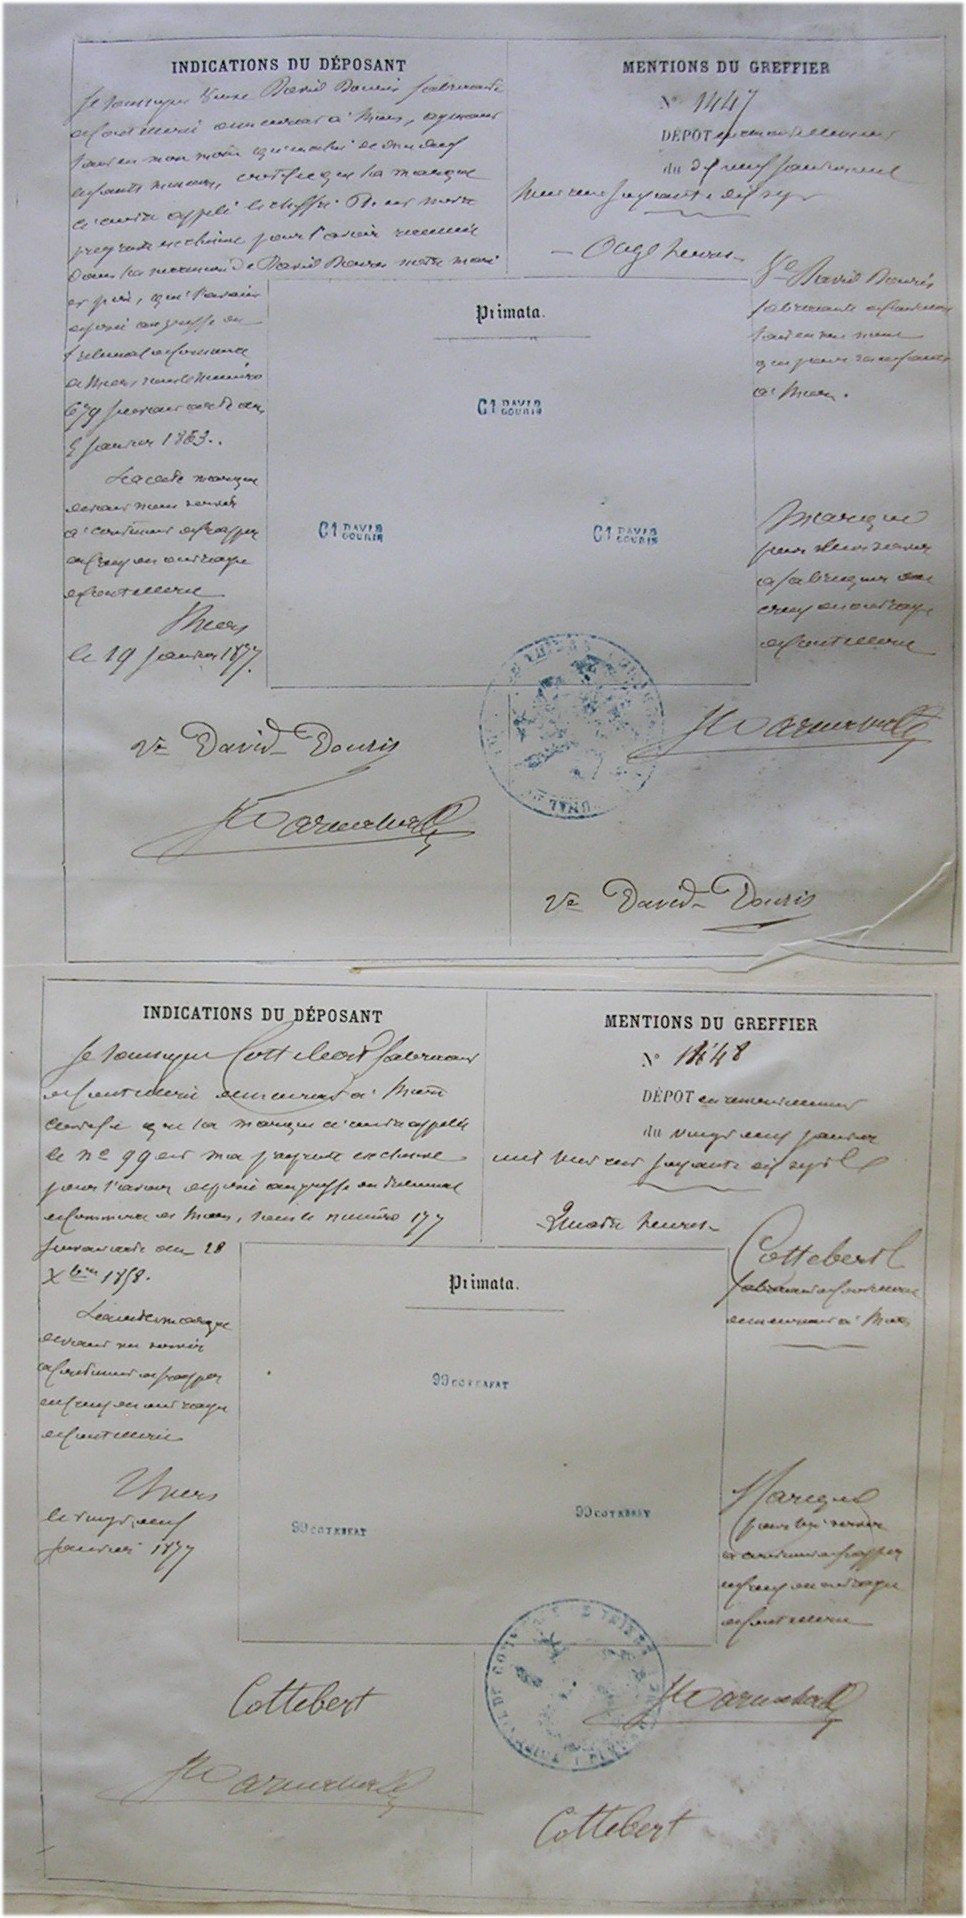 INDICATIONS DU DÉPOSANT
Je soussigné Veuve David Douris fabricante
de Coutellerie demeurant à Thiers, agissant
tant en mon nom qu'en celui de mes
enfants mineurs, certifie que la marque
ci contre
propriété exclusive pour l'avoir recueillie
dans la succession de David Douris notre mari
et père, qui l'avait
déposé au greffe du
tribunal de Commerce
de Thiers, sous le numéro
679 suivant acte du
5 janvier 1863.
La dite marque
devant nous servir
à continuer de frapper
en creux nos ouvrages
de Coutellerie
Thiers
le 19 janvier 1877.
Vve David Douris
MENTIONS DU GREFFIER
N° 1447
DÉPOT en renouvellement
du dix neuf janvier mil
huit cent soixante dix sept
Onze heures
Primata.
C1 DAVID DOURIS
C1 DAVID DOURIS
C1 DAVID DOURIS
Ve David Douris
fabricante de Coutellerie
tant en son nom
que pour ses enfants
à Thiers.
Marque
pour leur servir
à
creux
de Coutellerie
Vve David Douris
INDICATIONS DU DÉPOSANT
Je soussigné Cottebert fabricant
de Coutellerie demeurant à Thiers
Certifie que la marque ci contre appelée
le n° 99 est ma propriété exclusive
pour l'avoir déposé au greffe du tribunal
de Commerce de Thiers, sous le numéro 177
suivant acte du 28
Xbre 1858.
La dite marque
devant me servir
à continuer de frapper
en creux mes ouvrages
de Coutellerie
Thiers
le vingt neuf
janvier 1877
Cottebert
MENTIONS DU GREFFIER
N° 1448
DÉPOT en renouvellement
du vingt neuf janvier
mil huit cent soixante dix sept
Quatre heures
Primata.
99 COTTEBERT
99 COTTEBERT
99 COTTEBERT
Cottebert
fabricant de Coutellerie
demeurant à Thiers
Marque
pour lui servir
à continuer de frapper
en creux ses ouvrages
de Coutellerie
TRIBUNAL DE COMMERCE DE THIERS
Cottebert